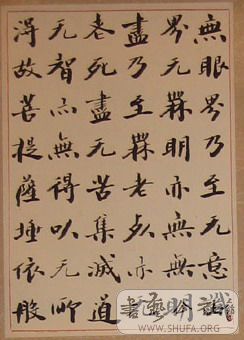 無眼界乃至无意識
界无無明亦無無明
盡乃至無老死亦無
老死盡无苦集滅道
无智亦無得以无所
得故菩提薩埵依般
WWW.SHUFA.ORG